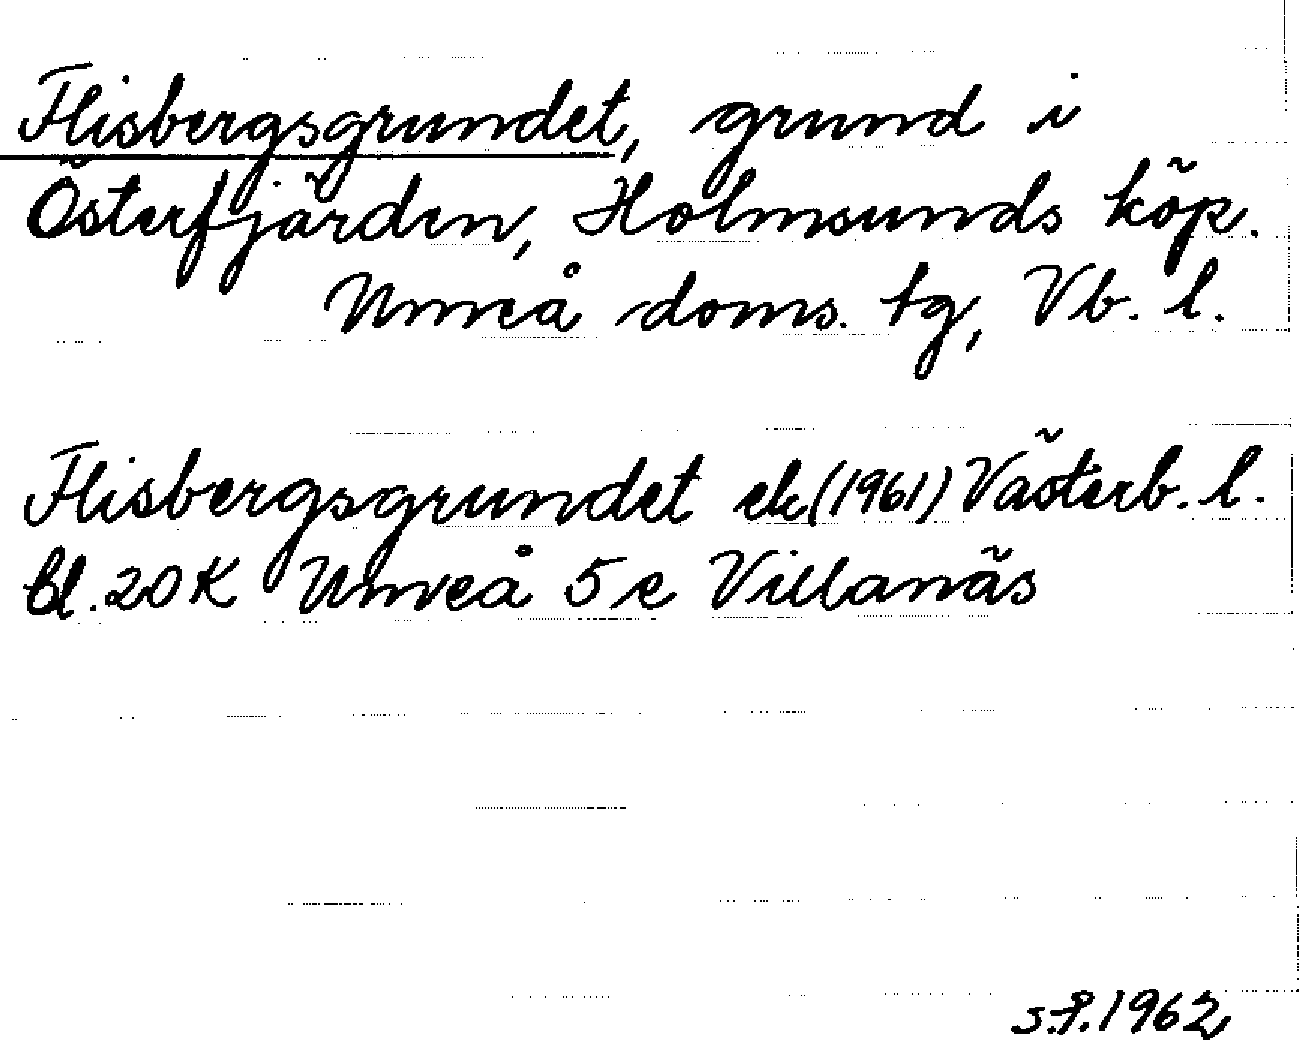 Flisbergsgrundet, grund i
Österfjärden, Holmsunds köp.
Umeå doms. tg, Vb. l.
Flisbergsgrundet ek (1961) Västerb. l.
bl. 20 K Umeå 5 e Villanäs
s.f. 1962